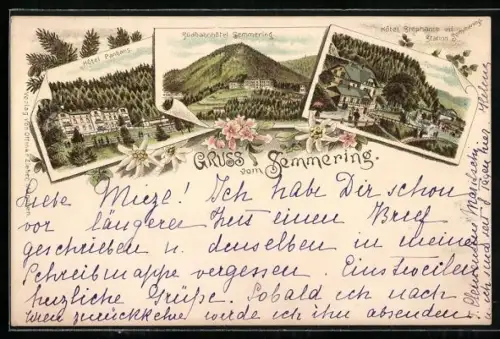 Hôtel Panhans
Südbahnhôtel Semmering
Hôtel Stephanie mit
Station Semmering
GRUSS
vom Semmering.
Liebe Mieze! Ich habe Dir schon
vor längerer Zeit einen Brief
geschrieben u. denselben in meiner
Schreibmappe vergessen. Einstweilen
herzliche Grüße. Sobald ich nach
Wien zurückkehre werde ich ihn absenden
Helene